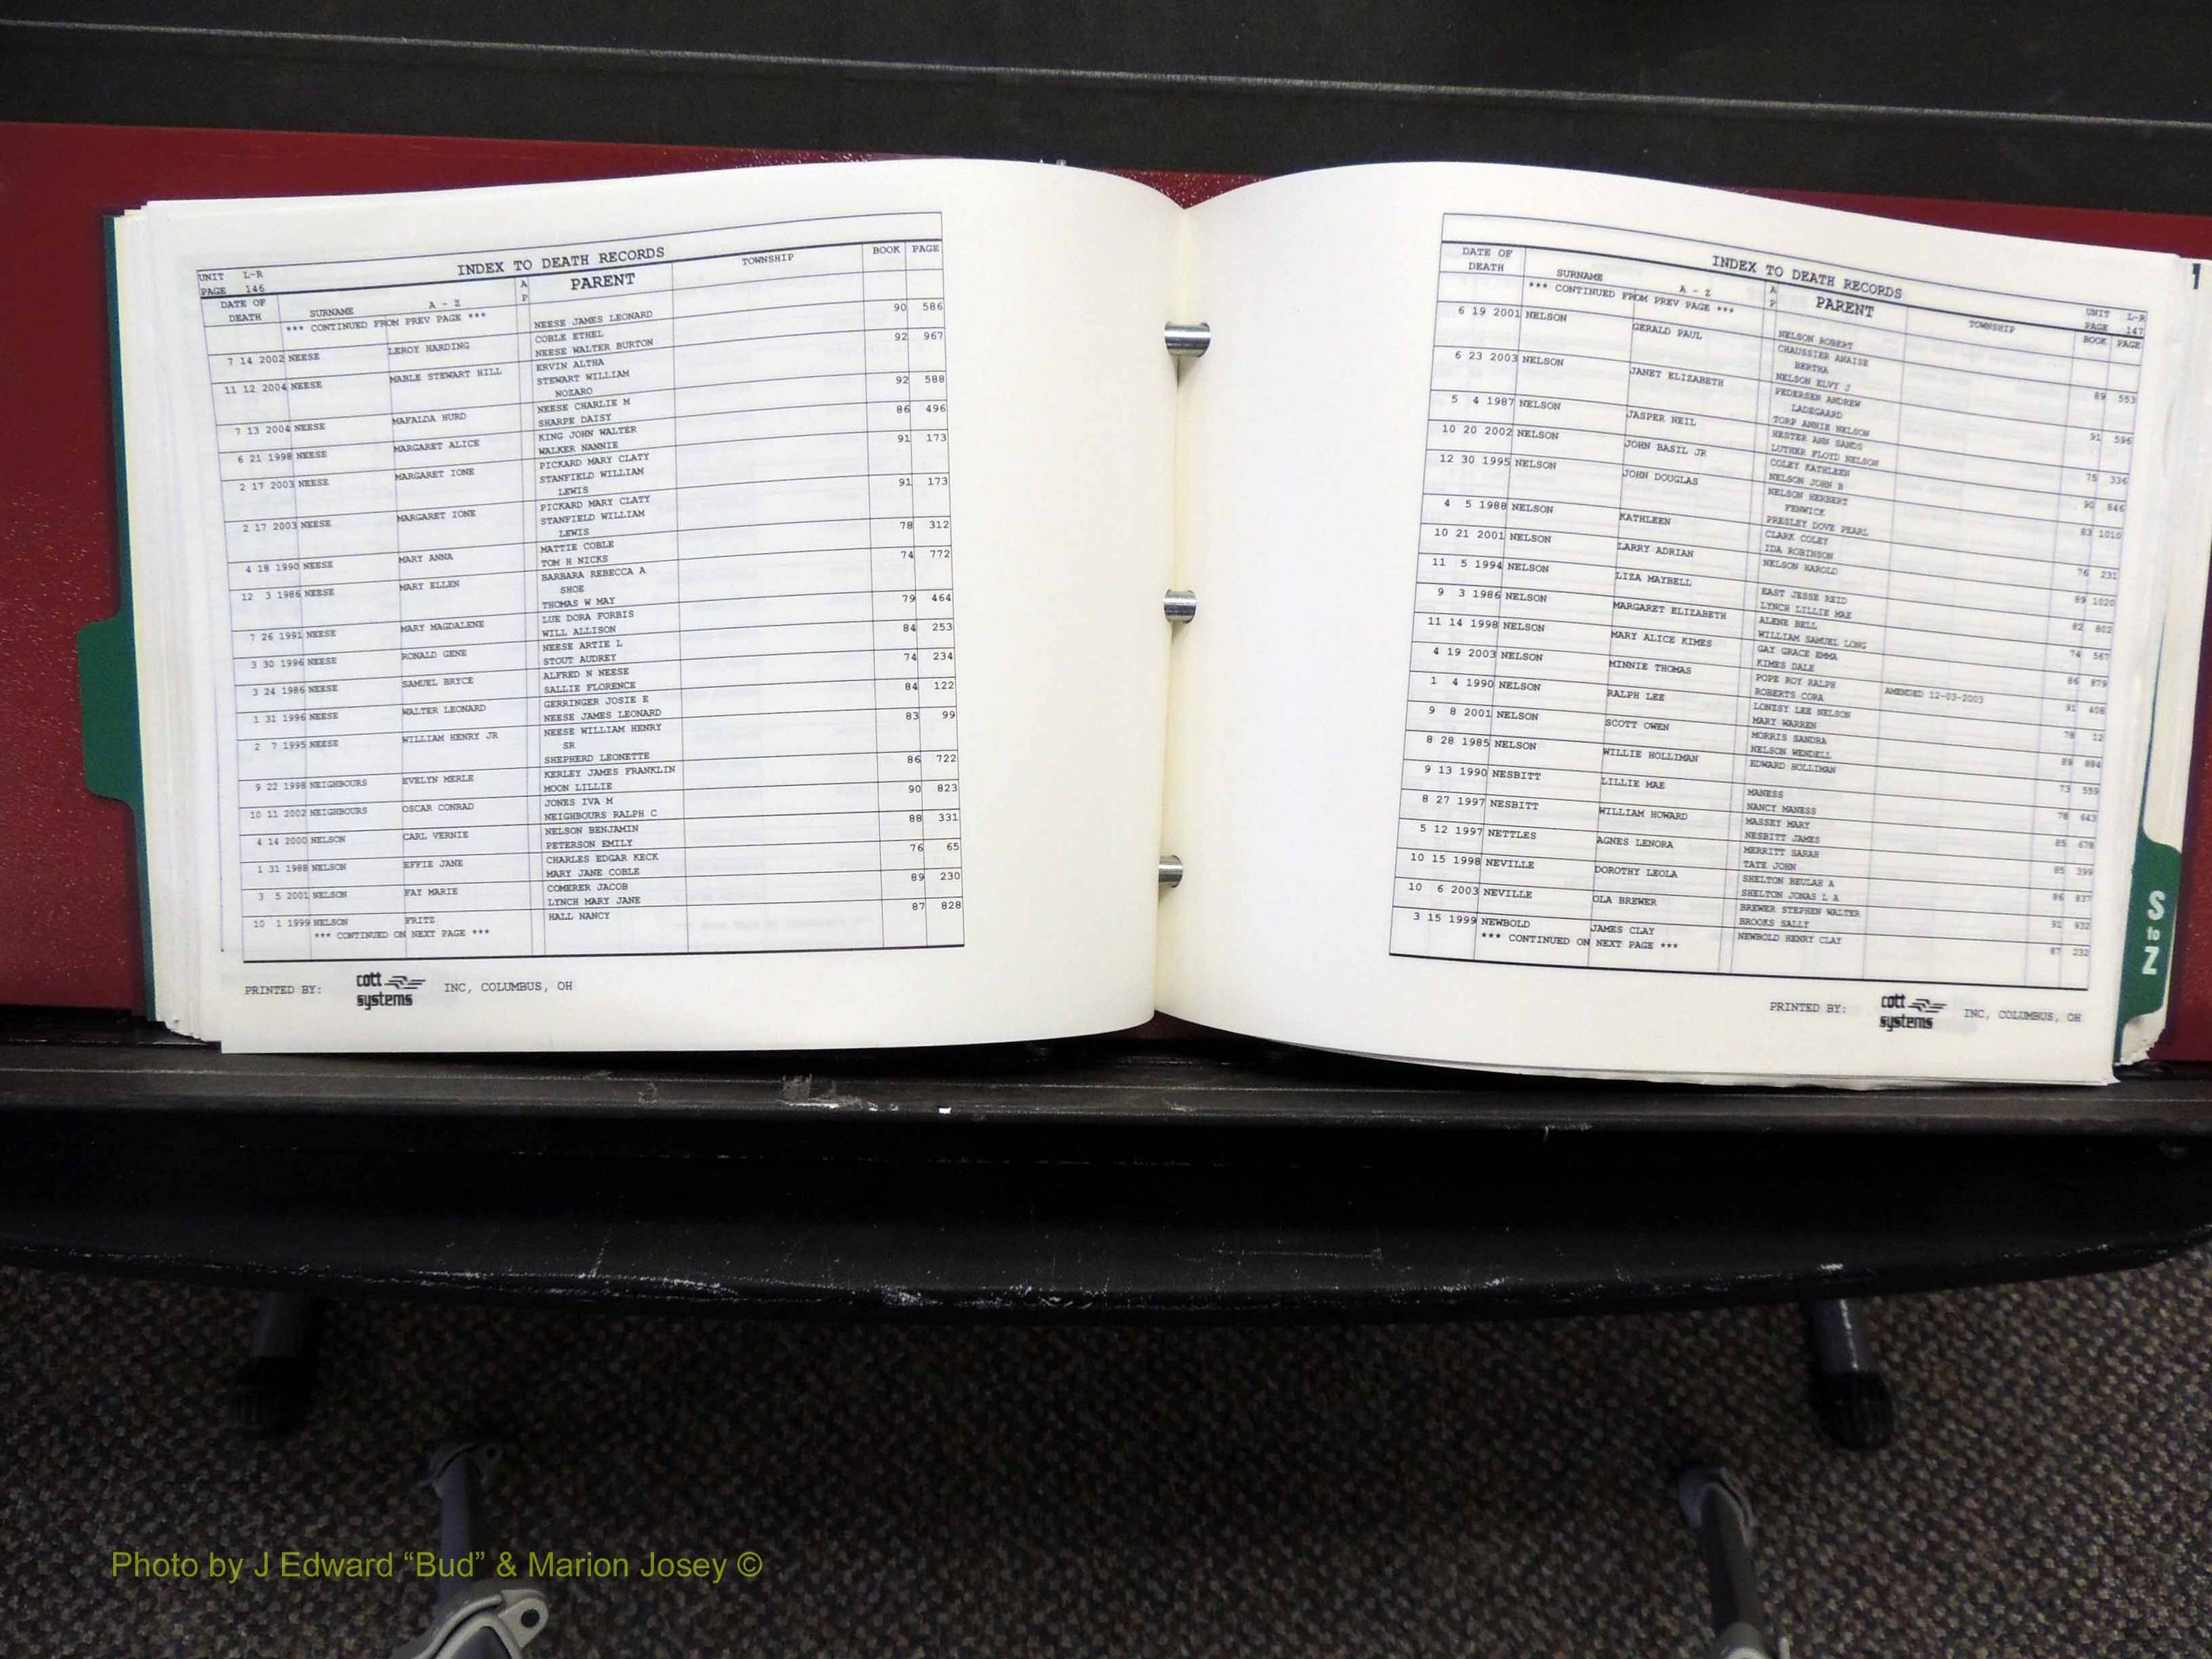 UNIT L-R
PAGE 146
INDEX TO DEATH RECORDS
DATE OF DEATH SURNAME A - Z A P PARENT TOWNSHIP BOOK PAGE
*** CONTINUED FROM PREV PAGE ***
7 14 2002 NEESE LEROY HARDING NEESE JAMES LEONARD 90 586
COBLE ETHEL
11 12 2004 NEESE MABLE STEWART HILL NEESE WALTER BURTON 92 967
ERVIN ALTHA
STEWART WILLIAM
NOZARO
7 13 2004 NEESE MAFALDA HURD NEESE CHARLIE M 92 588
SHARPE DAISY
6 21 1998 NEESE MARGARET ALICE KING JOHN WALTER 86 496
WALKER NANNIE
2 17 2003 NEESE MARGARET IONE PICKARD MARY CLATY 91 173
STANFIELD WILLIAM
LEWIS
2 17 2003 NEESE MARGARET IONE PICKARD MARY CLATY 91 173
STANFIELD WILLIAM
LEWIS
4 18 1990 NEESE MARY ANNA MATTIE COBLE 78 312
TOM H NICKS
12 3 1986 NEESE MARY ELLEN BARBARA REBECCA A 74 772
SHOE
THOMAS W MAY
7 26 1991 NEESE MARY MAGDALENE LUE DORA FORBIS 79 464
WILL ALLISON
3 30 1996 NEESE RONALD GENE NEESE ARTIE L 84 253
STOUT AUDREY
3 24 1986 NEESE SAMUEL BRYCE ALFRED N NEESE 74 234
SALLIE FLORENCE
1 31 1996 NEESE WALTER LEONARD GERRINGER JOSIE E 84 122
NEESE JAMES LEONARD
2 7 1995 NEESE WILLIAM HENRY JR NEESE WILLIAM HENRY 83 99
SR
SHEPHERD LEONETTE
9 22 1998 NEIGHBOURS EVELYN MERLE KERLEY JAMES FRANKLIN 86 722
MOON LILLIE
10 11 2002 NEIGHBOURS OSCAR CONRAD JONES IVA M 90 823
NEIGHBOURS RALPH C
4 14 2000 NELSON CARL VERNIE NELSON BENJAMIN 88 331
PETERSON EMILY
1 31 1988 NELSON EFFIE JANE CHARLES EDGAR KECK 76 65
MARY JANE COBLE
3 5 2001 NELSON FAY MARIE COMERER JACOB 89 230
LYNCH MARY JANE
10 1 1999 NELSON FRITZ HALL NANCY 87 828
*** CONTINUED ON NEXT PAGE ***
PRINTED BY: cott systems INC, COLUMBUS, OH
INDEX TO DEATH RECORDS
UNIT L-R
PAGE 147
DATE OF DEATH SURNAME A - Z A P PARENT TOWNSHIP BOOK PAGE
*** CONTINUED FROM PREV PAGE ***
6 19 2001 NELSON GERALD PAUL NELSON ROBERT 89 553
CHAUSSIER ANAISE
BERTHA
NELSON ELVY J
6 23 2003 NELSON JANET ELIZABETH PEDERSEN ANDREW 91 596
LADEGAARD
TORP ANNIE NELSON
5 4 1987 NELSON JASPER NEIL HESTER ANN SANDS 75 336
LUTHER FLOYD NELSON
10 20 2002 NELSON JOHN BASIL JR COLEY KATHLEEN 90 846
NELSON JOHN B
12 30 1995 NELSON JOHN DOUGLAS NELSON HERBERT 83 1010
FENWICK
PRESLEY DOVE PEARL
4 5 1988 NELSON KATHLEEN CLARK COLEY 76 231
IDA ROBINSON
10 21 2001 NELSON LARRY ADRIAN NELSON HAROLD 89 1020
11 5 1994 NELSON LIZA MAYBELL EAST JESSE REID 82 802
LYNCH LILLIE MAE
9 3 1986 NELSON MARGARET ELIZABETH ALENE BELL 74 567
WILLIAM SAMUEL LONG
11 14 1998 NELSON MARY ALICE KIMES GAY GRACE EMMA 86 879
KIMES DALE
4 19 2003 NELSON MINNIE THOMAS POPE ROY RALPH AMENDED 12-03-2003 91 408
ROBERTS CORA
1 4 1990 NELSON RALPH LEE LONZSY LEE NELSON 78 12
MARY WARREN
9 8 2001 NELSON SCOTT OWEN MORRIS SANDRA 89 884
NELSON WENDELL
8 28 1985 NELSON WILLIE HOLLIMAN EDWARD HOLLIMAN 73 559
9 13 1990 NESBITT LILLIE MAE MANESS 78 643
NANCY MANESS
8 27 1997 NESBITT WILLIAM HOWARD MASSEY MARY 85 678
NESBITT JAMES
5 12 1997 NETTLES AGNES LENORA MERRITT SARAH 85 399
TATE JOHN
10 15 1998 NEVILLE DOROTHY LEOLA SHELTON BEULAH A 86 837
SHELTON JONAS L A
10 6 2003 NEVILLE OLA BREWER BREWER STEPHEN WALTER 91 932
BROOKS SALLY
3 15 1999 NEWBOLD JAMES CLAY NEWBOLD HENRY CLAY 87 232
*** CONTINUED ON NEXT PAGE ***
PRINTED BY: cott systems INC, COLUMBUS, OH
S
to
Z
1
Photo by J Edward “Bud” & Marion Josey ©